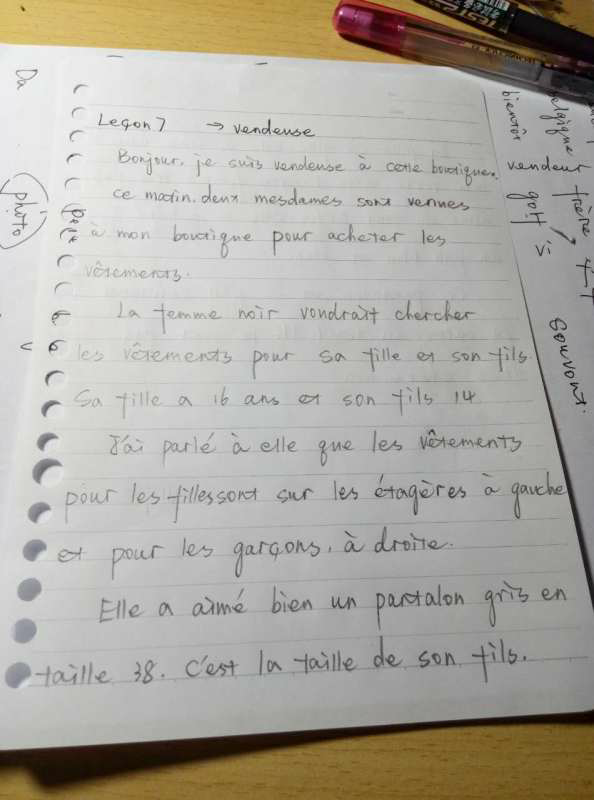 Leçon 7 → vendeuse
Bonjour, je suis vendeuse à cette boutique.
ce matin. deux mesdames sont venues
à mon boutique pour acheter les
vêtements.
La femme noir voudrait chercher
les vêtements pour sa fille et son fils.
Sa fille a 16 ans et son fils 14
J'ai parlé à elle que les vêtements
pour les filles sont sur les étagères à gauche
et pour les garçons, à droite.
Elle a aimé bien un pantalon gris en
taille 38. C'est la taille de son fils.
Da
photo
belgique
bientôt
vendeur
frère
golf
souvont.